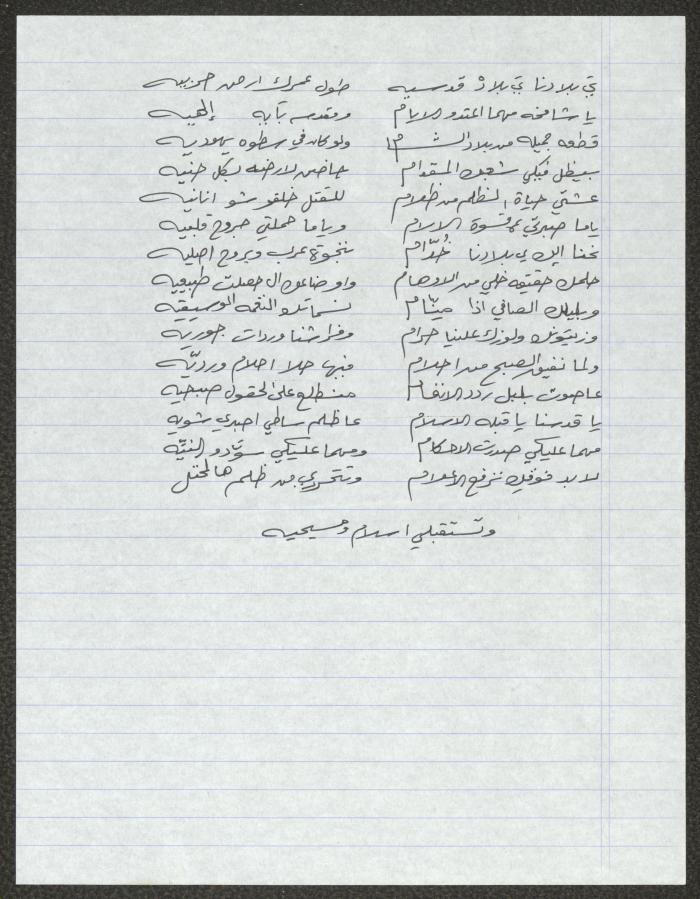 يَ بلادنا يَ بلادْ قدسيه طول عمرك ارض حربيه
يا شامخه مهما اعتدو الايام ومقدسه بآيه إلهيه
قطعه جميله من بلاد الشام ولو كان في سطوه يهوديه
بيظل فيكي شعبك المقدام حاضن لارضه بكل حنيه
عشتي حياة الظلم من ظلام للقتل خلقو شو انانيه
ياما صبرتي ع قسوة الالام وياما حملتي جروح قلبيه
نحنا إلك يَ بلادنا خُدّام بنخوة عرب وبروح اصليه
حلمك حقيقه خلي من الاوهام واوضاعك ال جعلت طبيعيه
وبليلك الصافي اذا نسماتك النغمه الموسيقيه
وزيتونك ولوزك علينا حرام وفراشنا وردات جوريه
ولما نفيق الصبح من احلام فيها حلا احلام ورديّه
عاصوت بلبل ردد الانغام منطلع على الحقول صبحيه
يا قدسنا يا قبله الاسلام عا ظلم ساطي اصبري شويه
مهما عليكي صدرت الاحكام ومهما عليكي سوّدو النيّه
لا بد فوقك نرفع الاعلام وتتحرري من ظلم هالمحتل
وتستقبلي اسلام ومسيحيه